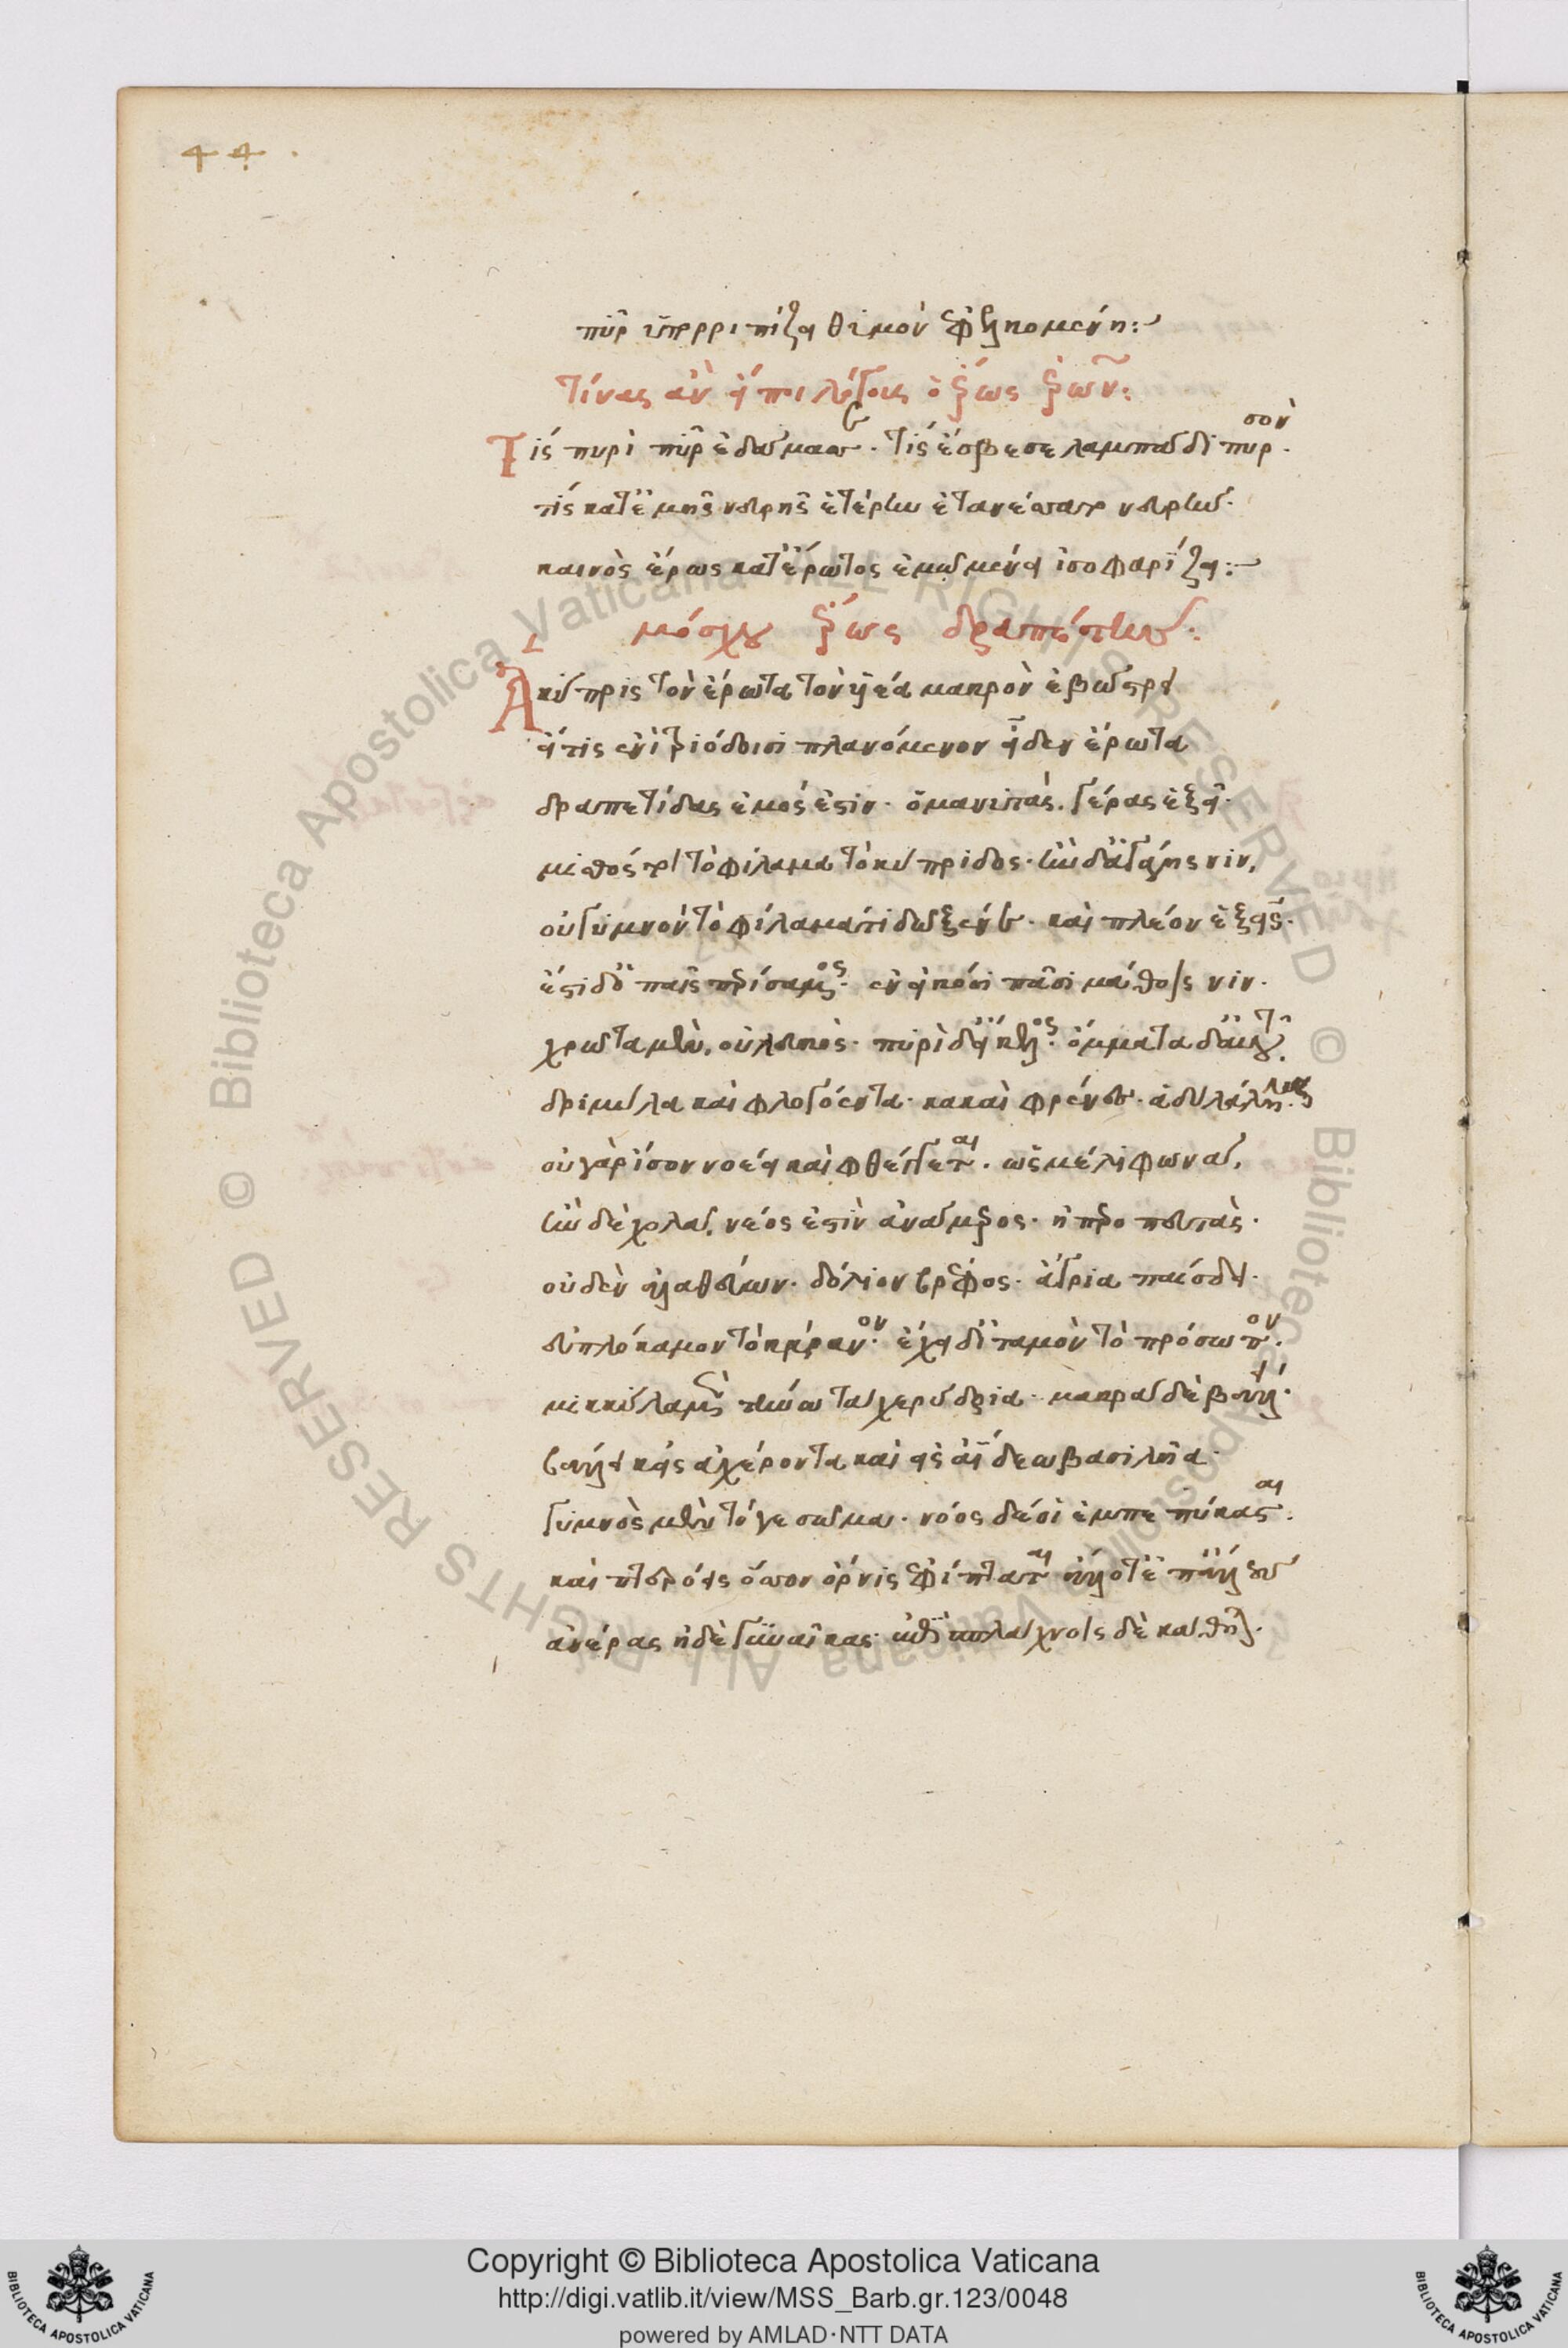 44.
πῦρ ὑπερριπίζει θυμὸν ἐφελκομένη:~
Τίνας ἂν εἴποι λόγους ὁ ἔρως ἐρῶν:
Τίς πυρὶ πῦρ ἐδάμασσε. τίς ἔσβεσε λαμπάδι πυρσὸν.
τίς κατ' ἐμῆς νευρῆς ἑτέρην ἐτανύσσατο νευρήν.
καινὸς ἔρως κατ' ἔρωτος ἐμῶ μένει ἰσοφαρίζει:~
μόσχου ἔρως δραπέτης:
Ἁ κύπρις τὸν ἔρωτα τὸν υἱέα μακρὸν ἐβώστρει
εἴ τις ἐνὶ τριόδοισι πλανόμενον εἶδεν ἔρωτα
δραπετίδας ἐμός ἐστιν. ὁ μανυτὰς. γέρας ἑξεῖ.
μισθός τοι τὸ φίλαμα τὸ κύπριδος. ἢν δ' ἀγάγης νιν,
οὐ γυμνὸν τὸ φίλαμα τὶ δ' ὦ ξένε. καὶ πλέον ἑξεῖς.
ἔστι δ' ὁ παῖς περίσαμος. ἐν εἴκοσι πᾶσι μάθοις νιν.
χρῶτα μὲν, οὐ λευκὸς. πυρὶ δ' εἴκελος. ὄμματα δ' αὐτοῦ.
δριμύλα καὶ φλογόεντα. κακαὶ φρένες. ἁδὺ λάλημα.
οὐ γὰρ ἴσον νοέει καὶ φθέγγεται. ὡς μέλι φωνά,
ἢν δὲ χολᾶ, νέος ἐστὶν ἀνάμερος. ἠπεροπευτὰς.
οὐδὲν ἀλαθεύων. δόλιον βρέφος. ἄγρια παίσδει.
εὐπλόκαμον τὸ κάρανον. ἔχει δ' ἰταμὸν τὸ πρόσωπον.
μικκύλα μὲν τήνω τὰ χερύδρια. μακρὰ δὲ βάλλει.
βάλλει κεἰς ἀχέροντα καὶ εἰς ἀΐδεω βασιλῆα.
γυμνὸς μὲν τόγε σῶμα. νόος δέ οἱ ἐμπεπύκασται.
καὶ πτερόεις ὅσον ὄρνις ἐφίπταται ἄλλοτ' ἐπ' ἄλλους
ἀνέρας ἠδὲ γυναῖκας. ἐπὶ σπλάγχνοις δὲ κάθηται.
Copyright © Biblioteca Apostolica Vaticana
http://digi.vatlib.it/view/MSS_Barb.gr.123/0048
powered by AMLAD·NTT DATA